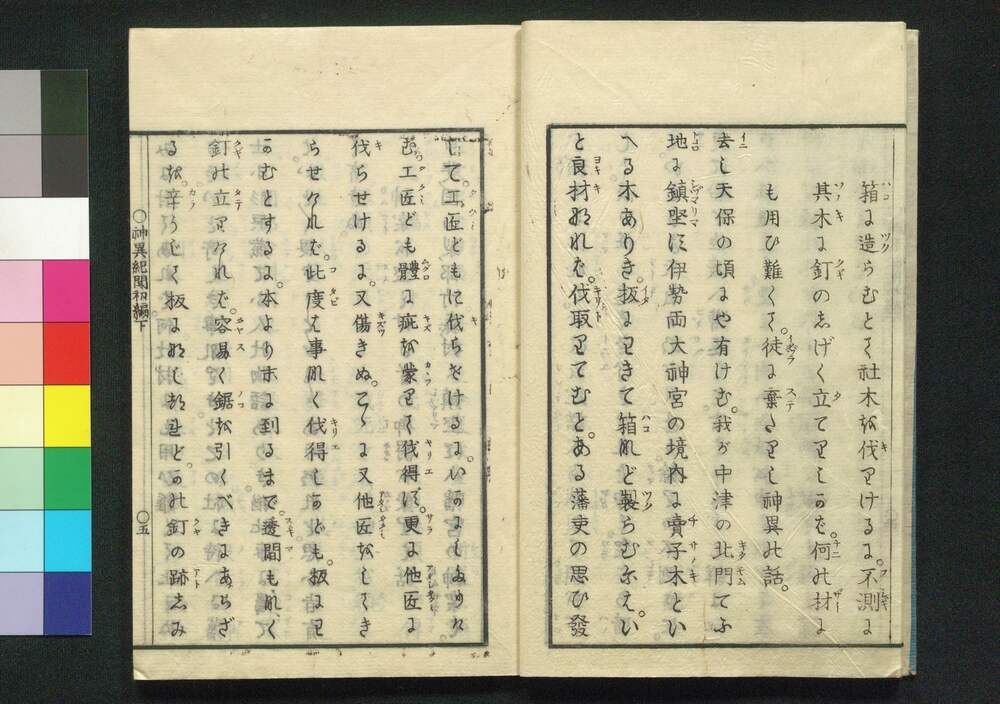 箱に造らむとて社木を伐りけるに。不測に
其木に釘のしげく立てりしかば。何の材に
も用ひ難くて。徒に棄たりし神異の話。
去し天保の頃にや有けむ。我が中津の北門てふ
地に鎮坐す伊勢両大神宮の境内に賣子木とい
へる木ありき。板にわきて箱など製らむにえ。い
と良材なれば。伐取りてむと。ある藩吏の思ひ發
して。工匠どもに伐らせけるに。いかにしけむ
工匠ども體に疵を蒙りて伐得ず。更に他匠に
伐らせけるに。又傷きぬ。かくて又他匠をしてき
らせければ。此度は事なく伐得しかども。板にわ
かむとするに。本より末に到るまで。透間もなく
釘の立りければ。容易く鋸を引くべきにあらざ
るを。辛うじて板になしゝかど。かの釘の跡しみ
〇神異紀聞初編下
〇五